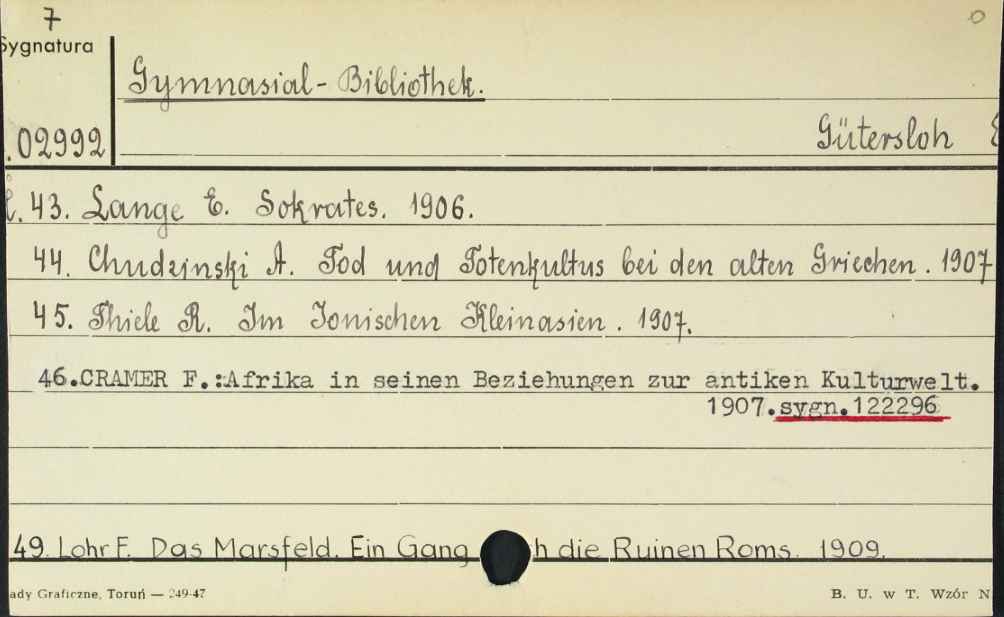 7
Sygnatura
Gymnasial-Bibliothek.
.02992
Gütersloh
43. Lange E. Sokrates. 1906.
44. Chudzinski A. Tod und Totenkultus bei den alten Griechen. 1907
45. Thiele R. Im Ionischen Kleinasien. 1907.
46.CRAMER F.:Afrika in seinen Beziehungen zur antiken Kulturwelt.
1907.sygn.122296
49. Lohr F. Das Marsfeld. Ein Gang h die Ruinen Roms. 1909.
ady Graficzne, Toruń — 249-47
B. U. w T. Wzór N